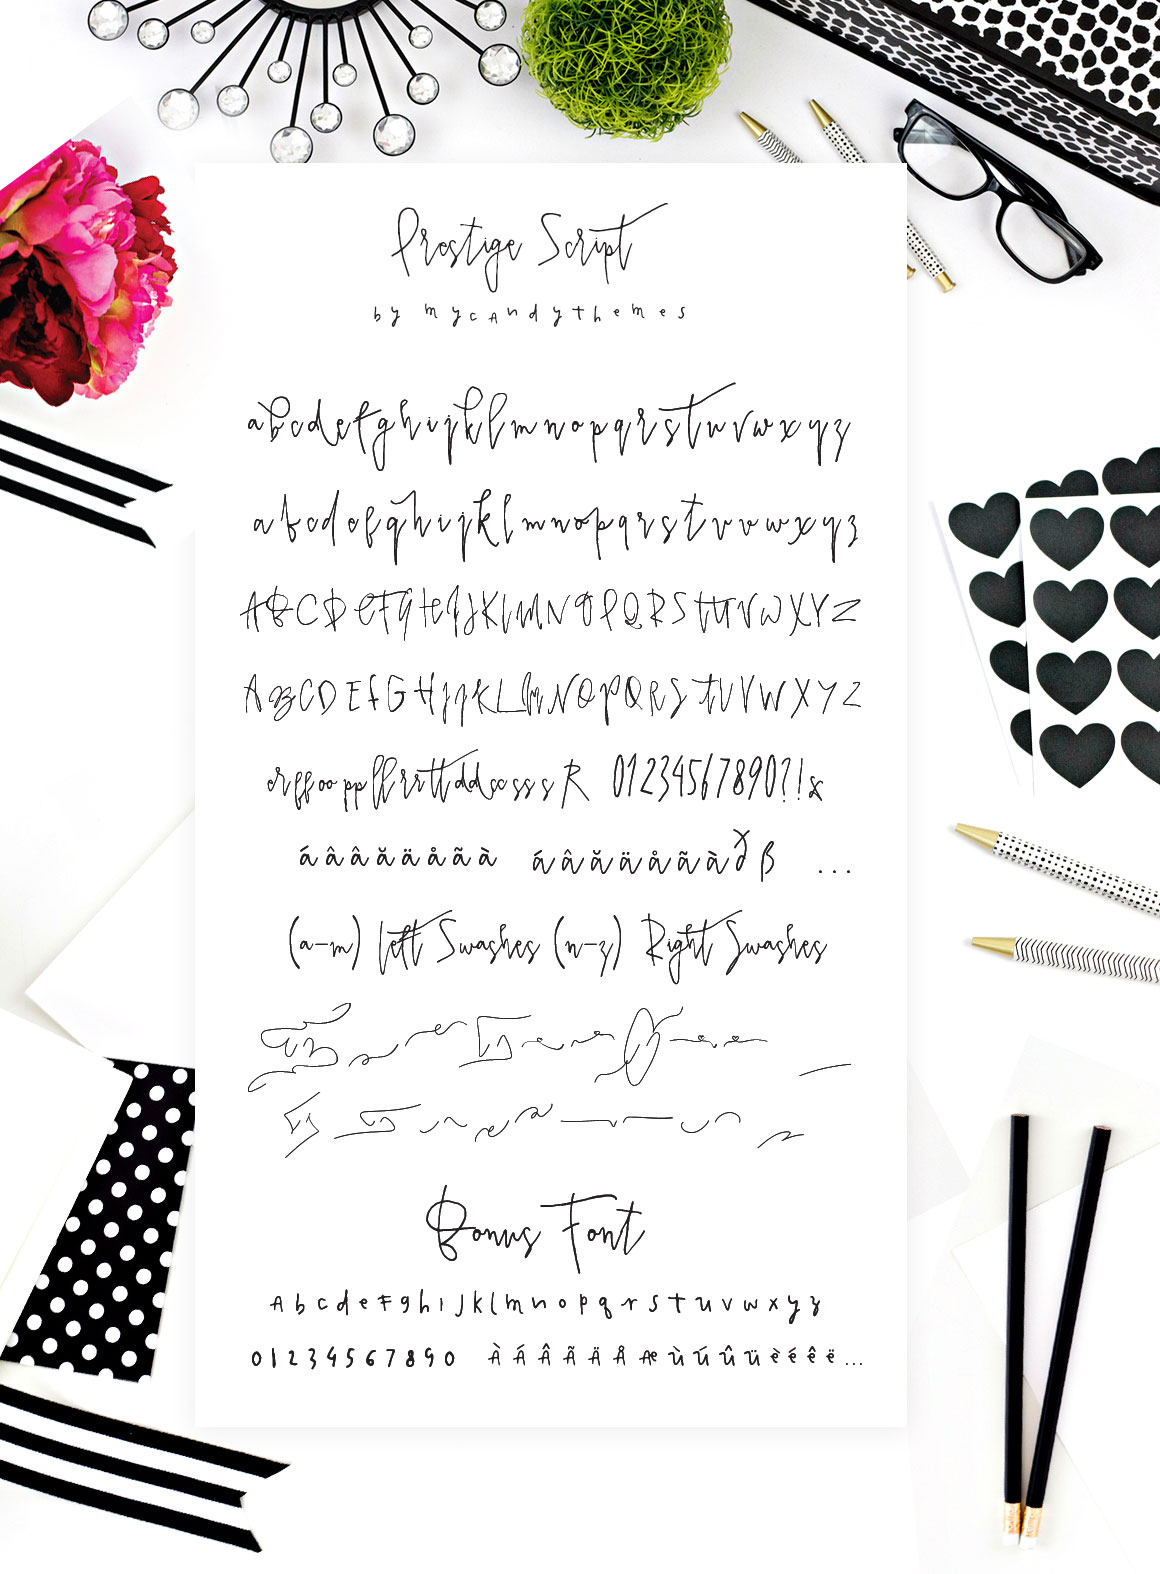 Prestige Script
by mycandythemes
abcdefghijklmnopqrstuvwxyz
abcdefghijklmnopqrstuvwxyz
ABCDEFGHIJKLMNOPQRSTUVWXYZ
ABCDEFGHIJKLMNOPQRSTUVWXYZ
R 01234567890?!&
áâãäåãà áâãäåãà ß ...
(a-m) Left Swashes (n-z) Right Swashes
Bonus Font
AbcdeFghIJklmnopqrstuvwxyz
01234567890 ÀÁÂÃÄÅÆùúûüèéêë...